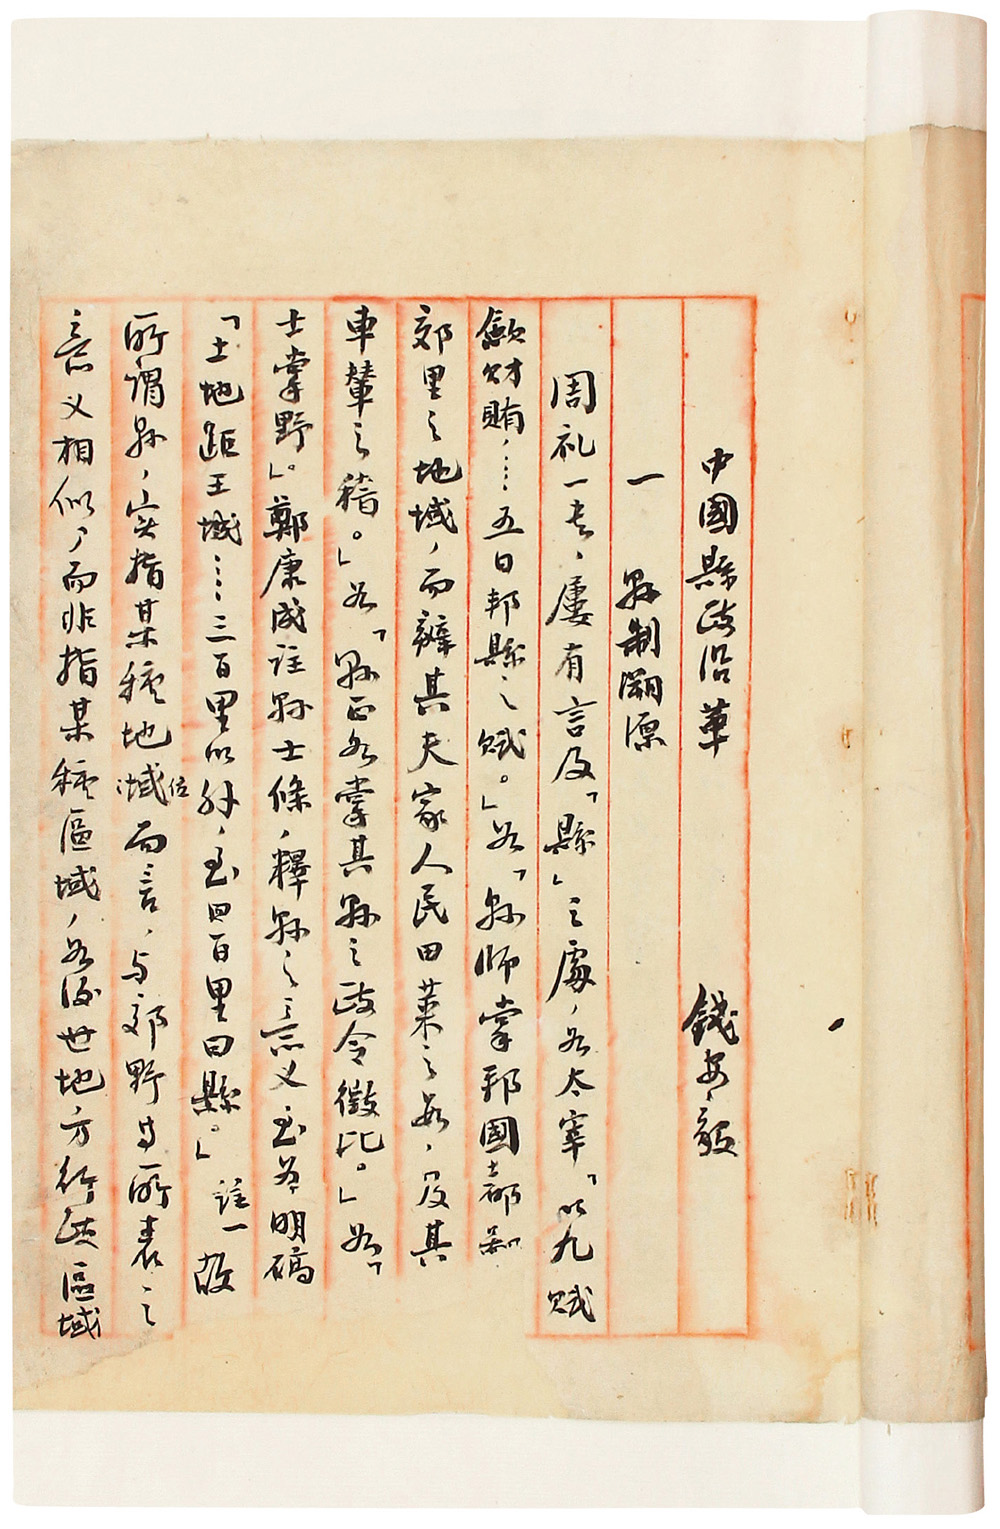 中國縣政沿革 錢安毅
一 縣制溯源
周礼一書，屢有言及「縣」之處，如太宰「以九賦
歛財賄，……五曰邦縣之賦。」如「縣師掌邦國都鄙
郊里之地域，而辨其夫家人民田萊之數，及其
車輦之稽。」如「縣正各掌其縣之政令徵比。」如「縣
士掌野」。鄭康成註縣士條，釋縣之意义至為明确
「土地距王城……三百里以外，至四百里曰縣。」註一 故
所謂縣，实指某種地域位而言，与郊野等所表之
意义相似，而非指某種區域，如後世地方行政區域